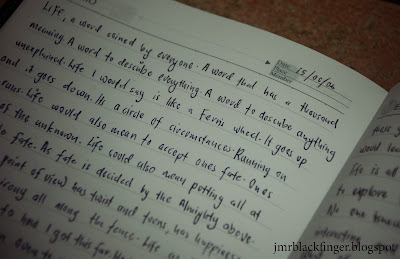 Date: 15/06/06
Life, a word coined by everyone. A word that has a thousand
meaning. A word to describe everything. A word to describe anything
unexplained. Life I would say is like a Ferris wheel. It goes up
and it goes down. Its a circle of circumstances. Running on
runs. Life would also mean to accept ones fate. Ones
of the unknown. Life could also mean putting all at
to fate. As fate is decided by the Almighty above.
point of view) has twist and teens, has happiness
wrong all along the fence. Life
to hold I got this far
Life is all
to explore
No one
interesting
jmrblackfinger.blogspot